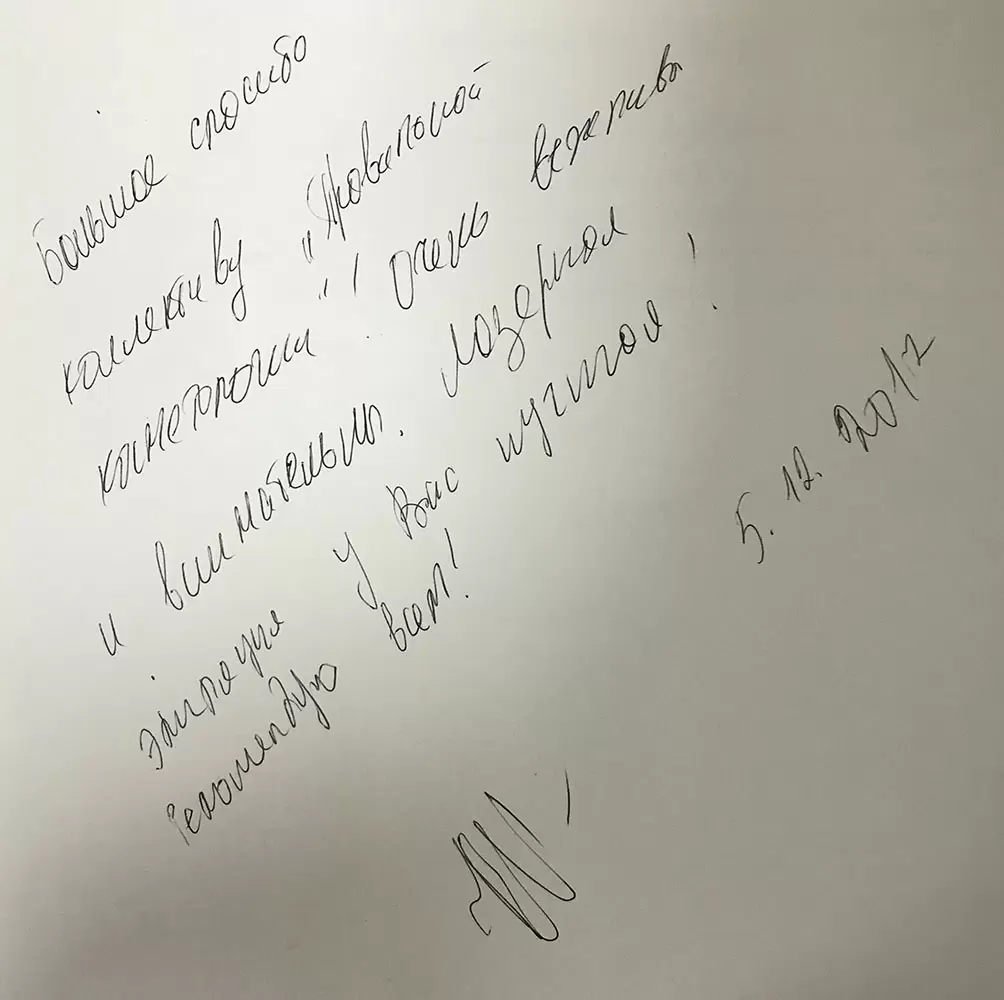 Большое спасибо
коллективу "Правильной
косметологии"! Очень вежливы
и внимательны. Лазерная
эпиляция у Вас лучшая!
рекомендую всем!
5.12.2017